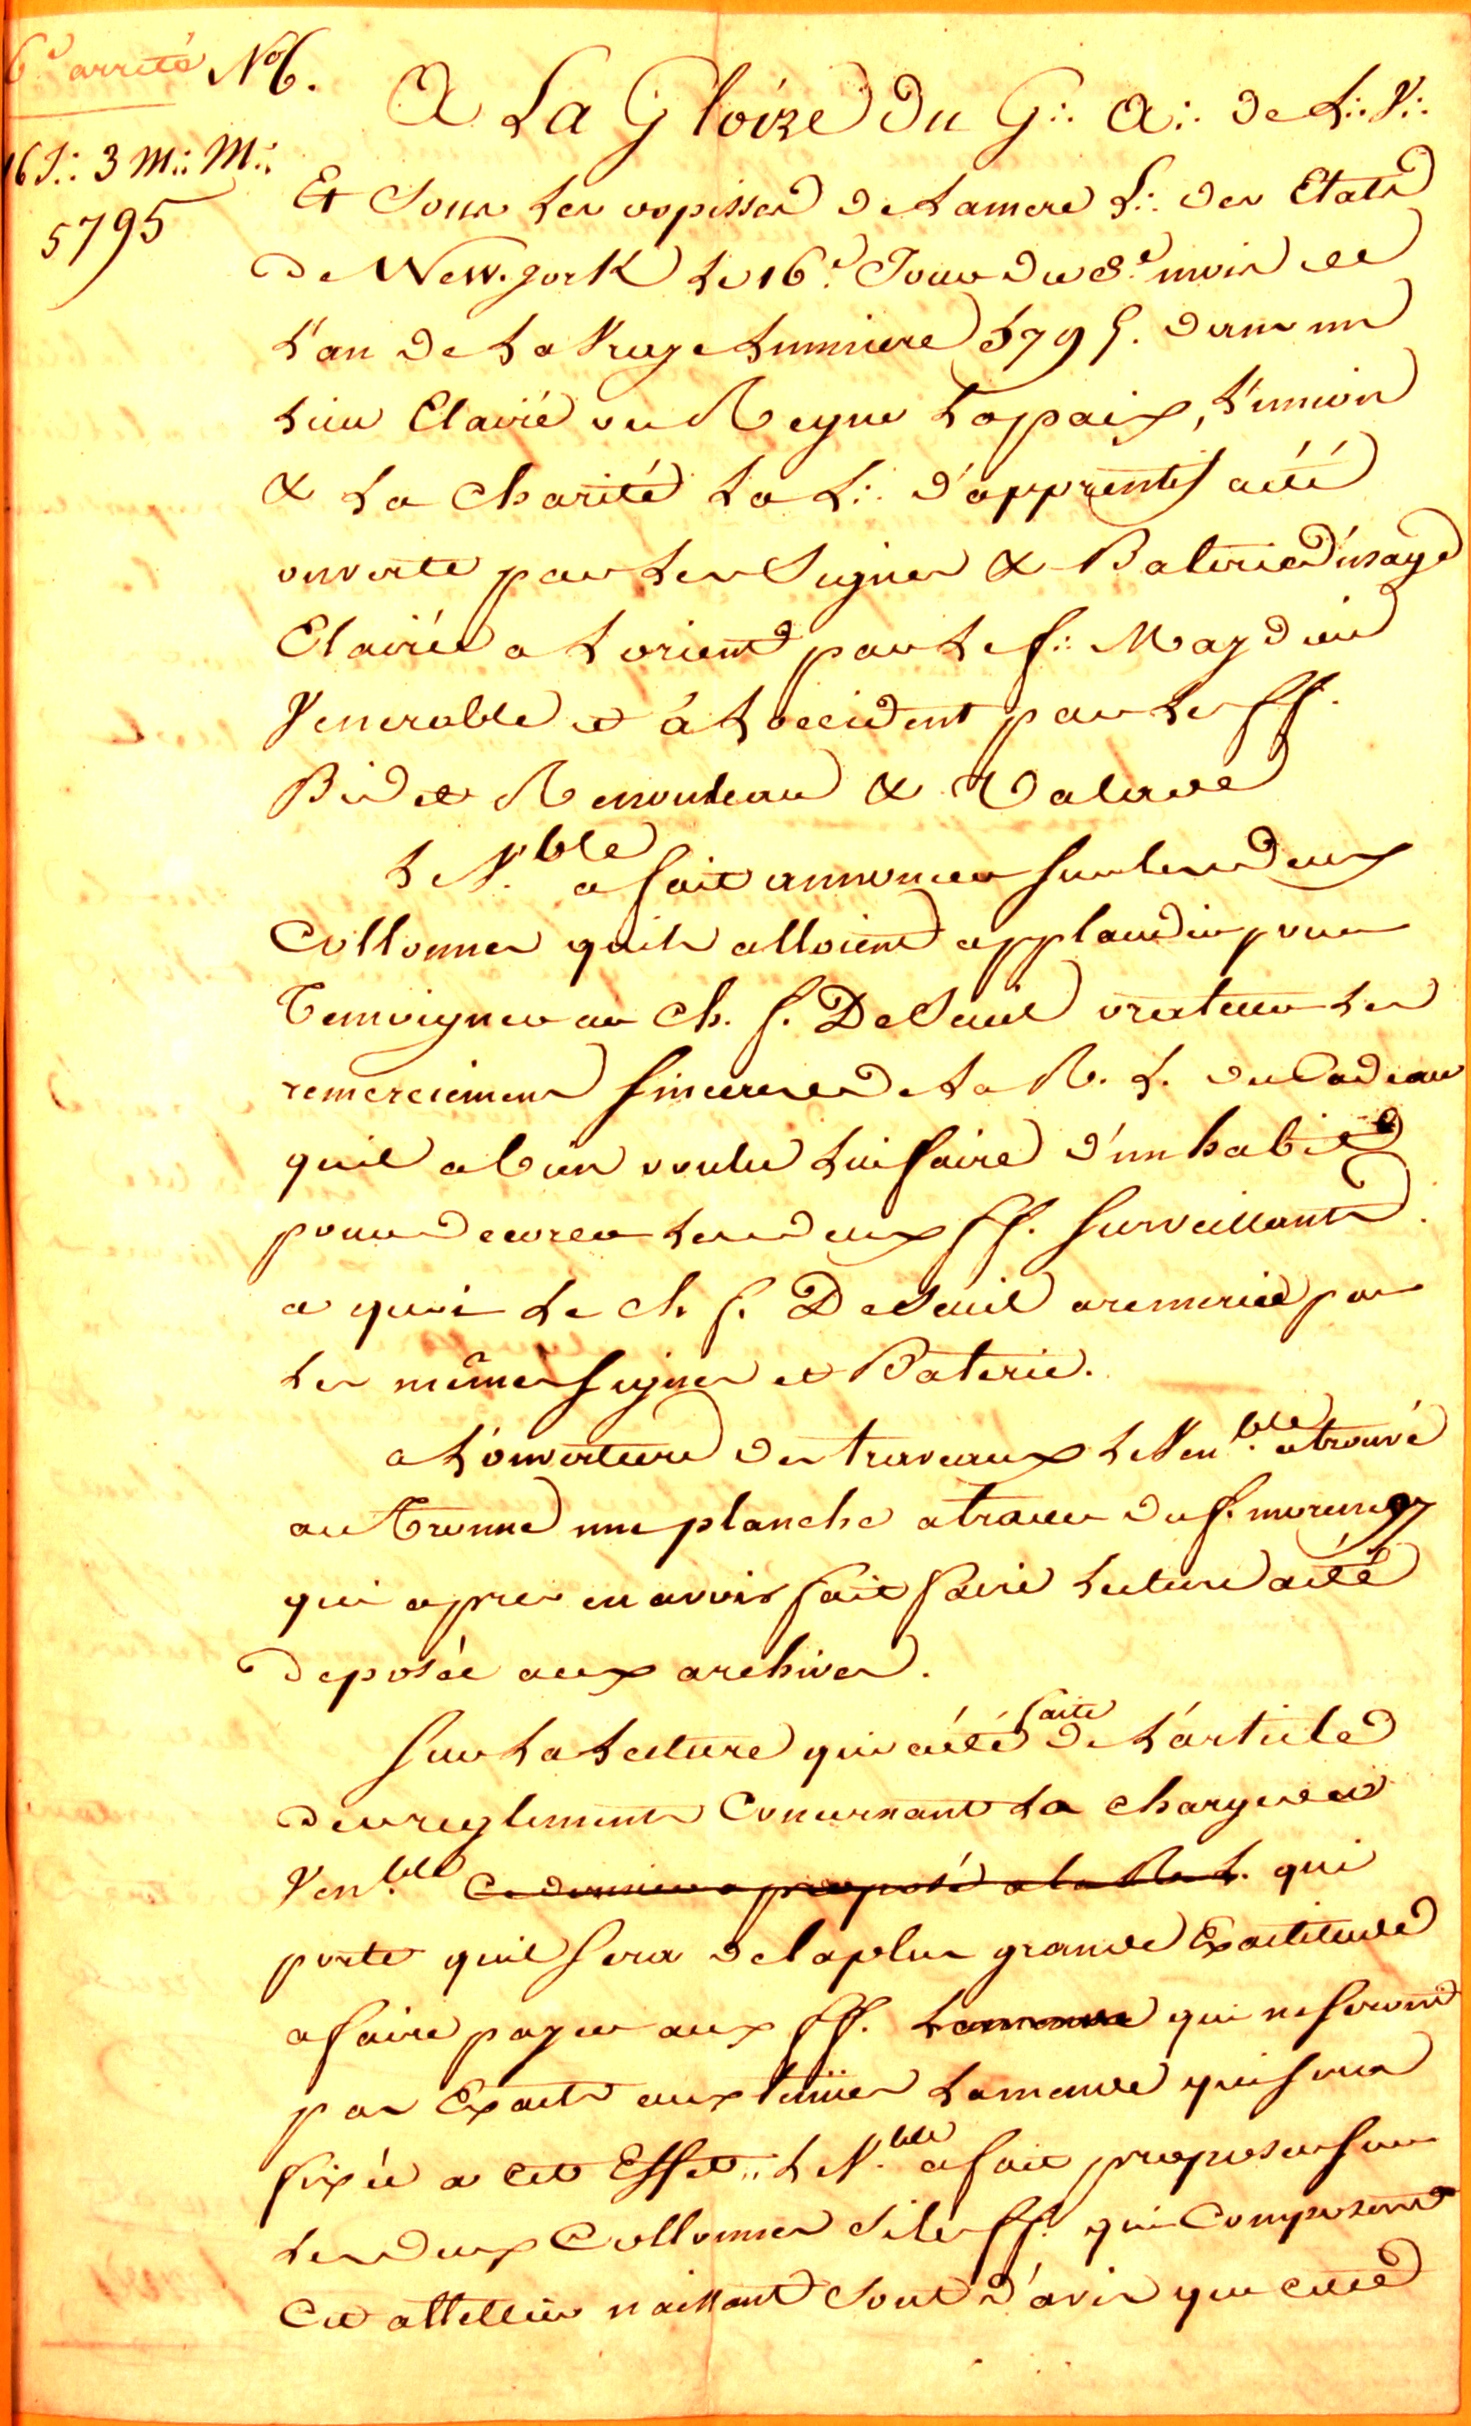 6.e arreté N.o 6.
16 J∴ 3 M∴ M∴
5795
A La Gloire Du G∴ A∴ de L∴ V∴
Et Sous Les ospisses de Lamere L∴ des Etats
de New-york Le 16.e Jour Du 8.e mois de
L'an de La Vraye Lummiere 5795. dans un
Lieu Eclairé ou Regne Lapaix, L'union
& La Charité La L∴ d'apprentif aété
ouverte par Les Signes & Baterie d'usage
Elairée a Lorient par Le f∴
Venerable et à Loccident par Les ff.
& Valade
Le V.ble a fait annoncer sur les deux
Collonnes quils alloient applaudir pour
Temoigner au Ch. f. Deseuil orateur Les
remerciemens sinceres de La R. L. du Cadeau
quil a bien voulu Lui faire d'un habit
pour decorer Les deux ff. Surveillants.
a quoi Le ch f. Deseuil aremercié par
Les mêmes signes et Baterie.
a L'ouverture des travaux Le Ven.ble atrouvé
au Tronne une planche atracer du f.
qui apres en avoir fait faire Lecture aété
deposée aux archives.
Sur La Lecture qui aété faite de L'article
des reglements Concernant La charge de
Ven.ble Ce dernier a proposé a la R. L. qui
porte quil sera de laplus grande Exactitude
afaire payer aux ff. Lamende qui ne seront
pas Exacts aux tenües Lamende qui sera
fixée a cet Effet,, Le V.ble afait proposer sur
Les deux Collonnes si les ff. qui Composent
Cet attellier naissant sont d'avis que cette